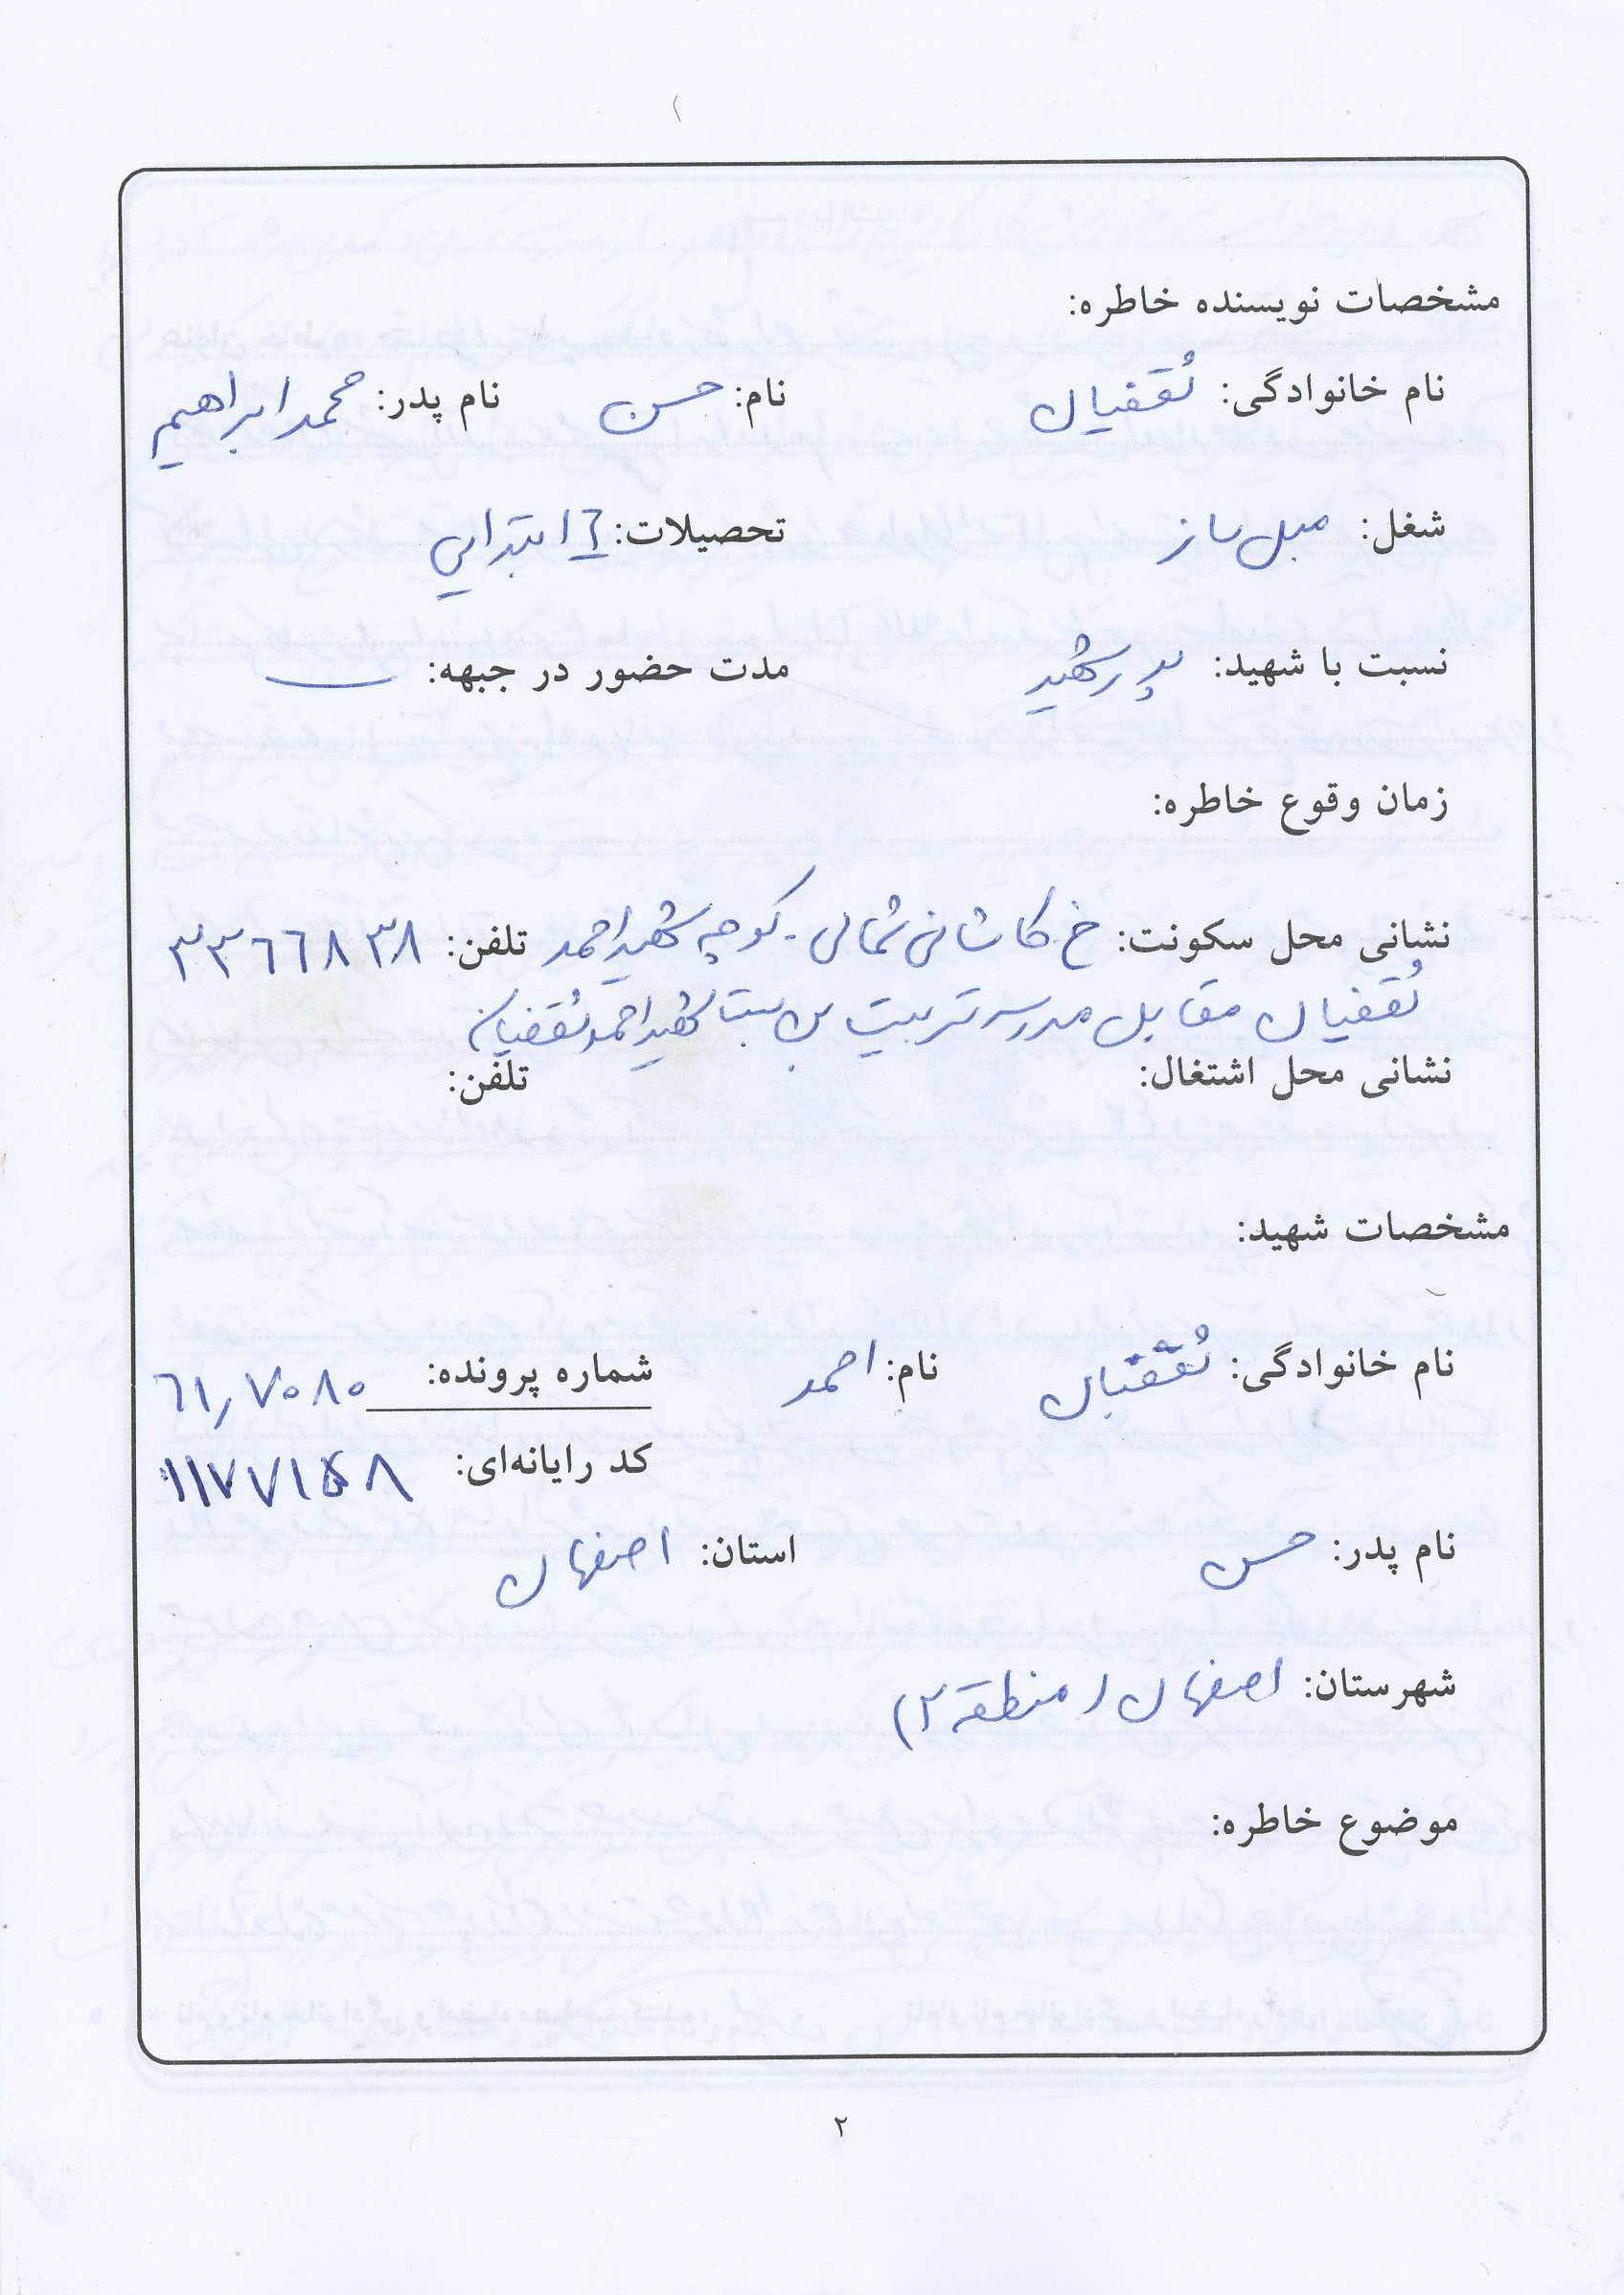 مشخصات نویسنده خاطره:
نام خانوادگی: نُقفیان نام: حسن نام پدر: محمد ابراهیم
شغل: مبل ساز تحصیلات: ٦ ابتدایی
نسبت با شهید: پدر شهید مدت حضور در جبهه: ــ
زمان وقوع خاطره:
نشانی محل سکونت: خ کاشانی شمالی - کوچه شهید احمد تلفن: ٣٣٦٦٨٣٨
نُقفیان مقابل مدرسه تربیت بن بست شهید احمد نُقفیان
نشانی محل اشتغال: تلفن:
مشخصات شهید:
نام خانوادگی: نُقفیان نام: احمد شماره پرونده: ٦١٫٧٠٨٠
کد رایانه‌ای: ١١٧٧١۵٨
نام پدر: حسن استان: اصفهان
شهرستان: اصفهان (منطقه ٢)
موضوع خاطره:
٢